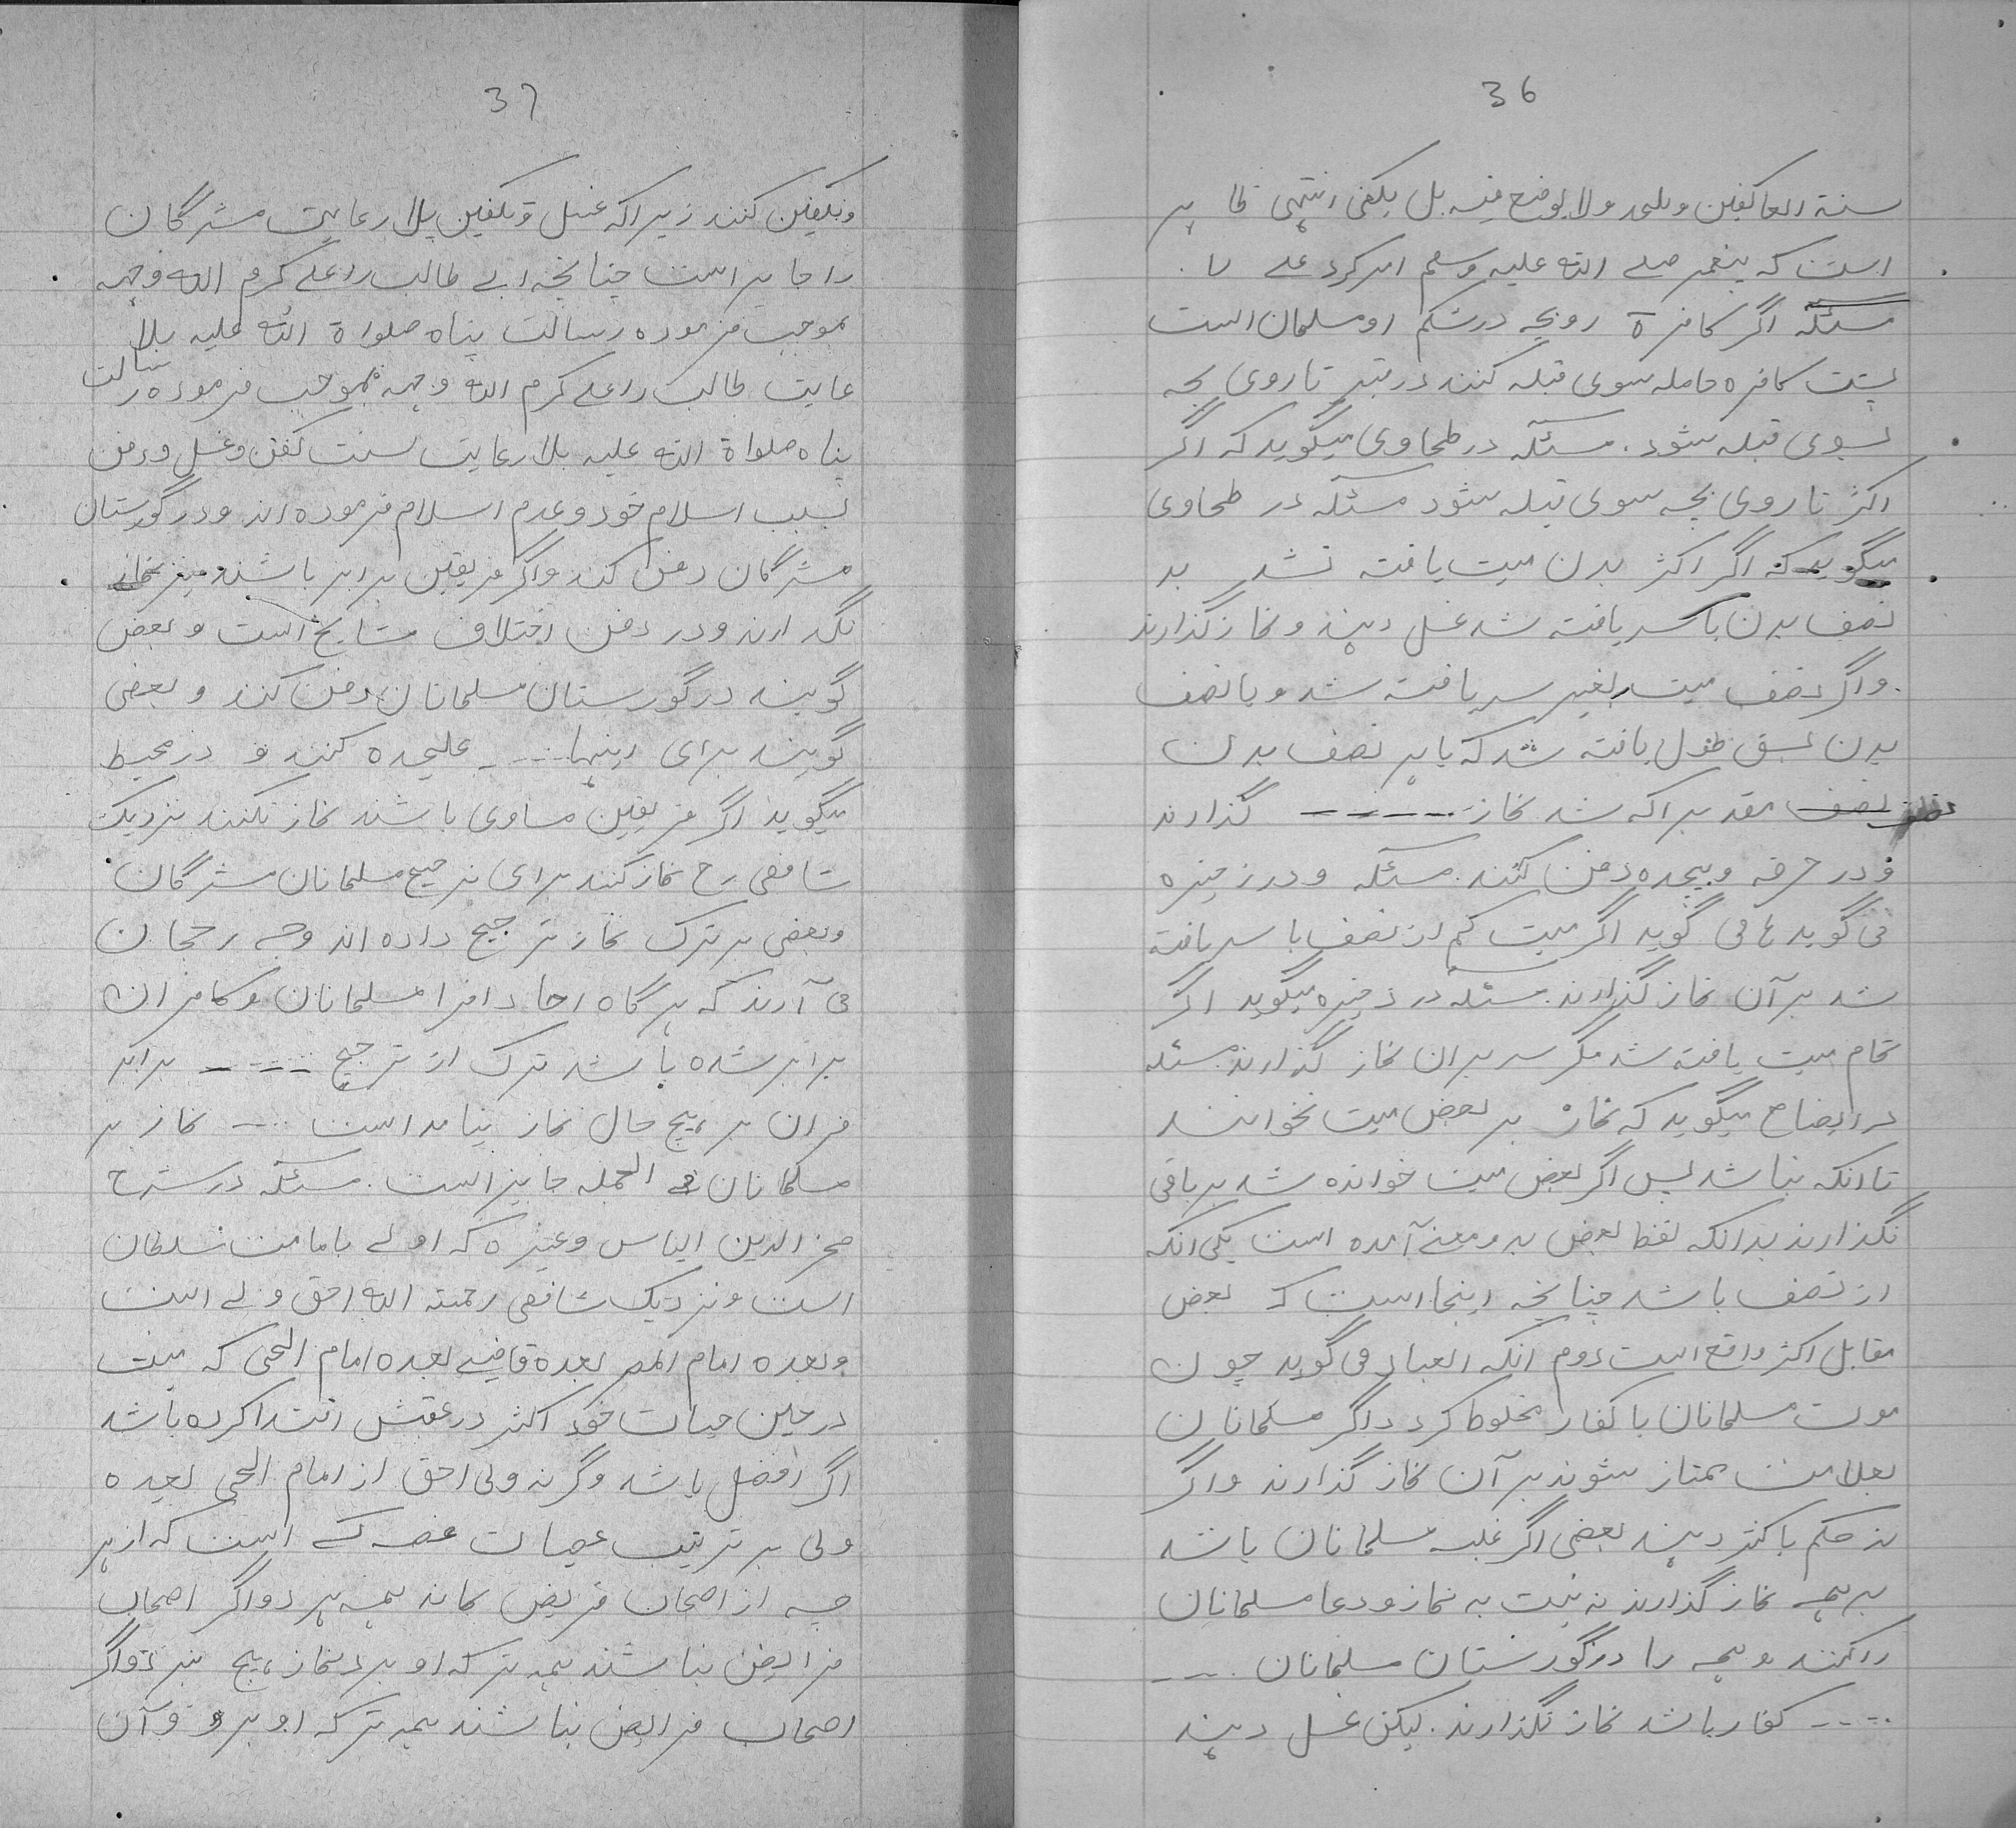 36
سنة العاکفین ویلحد ولا یوضع فیه بل یلقی انتهی ظاہر
است که پیغمبر صلے اللہ علیہ وسلم امر کرد علے
مسئلہ اگر کافرۃ روبچه درشکم او مسلمان است
پشت کافره حامله سوی قبله کنند در قبر تا روی بچه
بسوی قبله شود. مسئلہ در طحاوی میگوید که اگر
اکثر تا روی بچه سوی قبله شود مسئلہ در طحاوی
میگوید که اگر اکثر بدن میت یافته نشد بر
نصف بدن با سر یافته شد غسل دہند و نماز گذارند
واگر نصف میت بغیر سر یافته شد و یا نصف
بدن بشق طول یافته شد که یا بر نصف بدن
نصف مقد براکه شد نماز ----- گذارند
و در خرقه وپیچده دفن کنند. مسئلہ و در ذخیره
می گوید اگر میت کم از نصف با سر یافته
شد بر آن نماز گذارند. مسئلہ در ذخیره میگوید اگر
تمام میت یافته شد مگر سر بران نماز گذارند مسئلہ
در ایضاح میگوید که نماز بر بعض میت نخوانند
تا انکه نباشد پس اگر بعض میت خوانده شد بر باقی
نگذارند بدانکه لفظ بعض بدو معنے آمده است یکی انکه
از نصف باشد چنانچه اینجا است کہ بعض
مقابل اکثر واقع است دوم انکه العباد می گوید چون
موت مسلمانان با کفار مخلوط گردد اگر مسلمانان
بعلامت ممتاز شوند بر آن نماز گذارند واگر
نہ حکم باکثر دہند بعضی اگر غلبه مسلمانان باشد
برہمه نماز گذارند نه نیت به نماز و دعا مسلمانان
را کنند و ہمه را در گورستان مسلمانان ----
---- کفار باشد نماز نگذارند. لیکن غسل دہند
37
وتکفین کنند زیراکه غسل وتکفین بلا رعایت مشرکان
را جایز است چنانچه ابے طالب را علے کرم اللہ وجہہ
بموجب فرموده رسالت پناه صلواۃ اللہ علیه بلا
عایت طالب را علے کرم اللہ وجہہ بموجب فرموده رسالت
پناه صلواۃ اللہ علیه بلا رعایت سنت کفن وغسل ودفن
بسبب اسلام خود وعدم اسلام فرموده اند ودر گورستان
مشرکان دفن کند واگر فریقین برابر باشند نیز نماز
نگذارند و در دفن اختلاف مشایخ است و بعض
گویند در گورستان مسلمانان دفن کنند و بعضی
گویند برای اینہا ---- علیحده کنند و در محیط
میگوید اگر فریقین مساوی باشند نماز نکنند نزدیک
شافعی رح نماز کنند برای ترجیح مسلمانان مشرکان
وبعضی بر ترک نماز ترجیح داده اند وجه رحجان
می آرند که ہر گاه احاد افرا مسلمانان وکافران
برابر شده باشد ترک از ترجیح ----- براند
فران بر ہیچ حال نماز نیامد است ---- نماز بر
مسلمانان فی الجمله جایز است. مسئلہ در شرح
فخر الدین الیاس وغیره که اولے بامامت سلطان
است ونزدیک شافعی رحمتہ اللہ احق ولے است
وبعده امام المصر بعده قاضے بعده امام الحی که میت
در حین حیات خود اکثر در عقبش اقتدا کرده باشد
اگر افضل باشد وگرنه ولی احق از امام الحی بعده
ولی بر ترتیب عصبات عصبه کسے است که از ہر
چه از اصحاب فریض بماند ہمه ببرد واگر اصحاب
فرایض نباشند ہمه ترکه او برد نماز ہیچ نبرد واگر
اصحاب فرایض نباشند ہمه ترکه او برد وآن